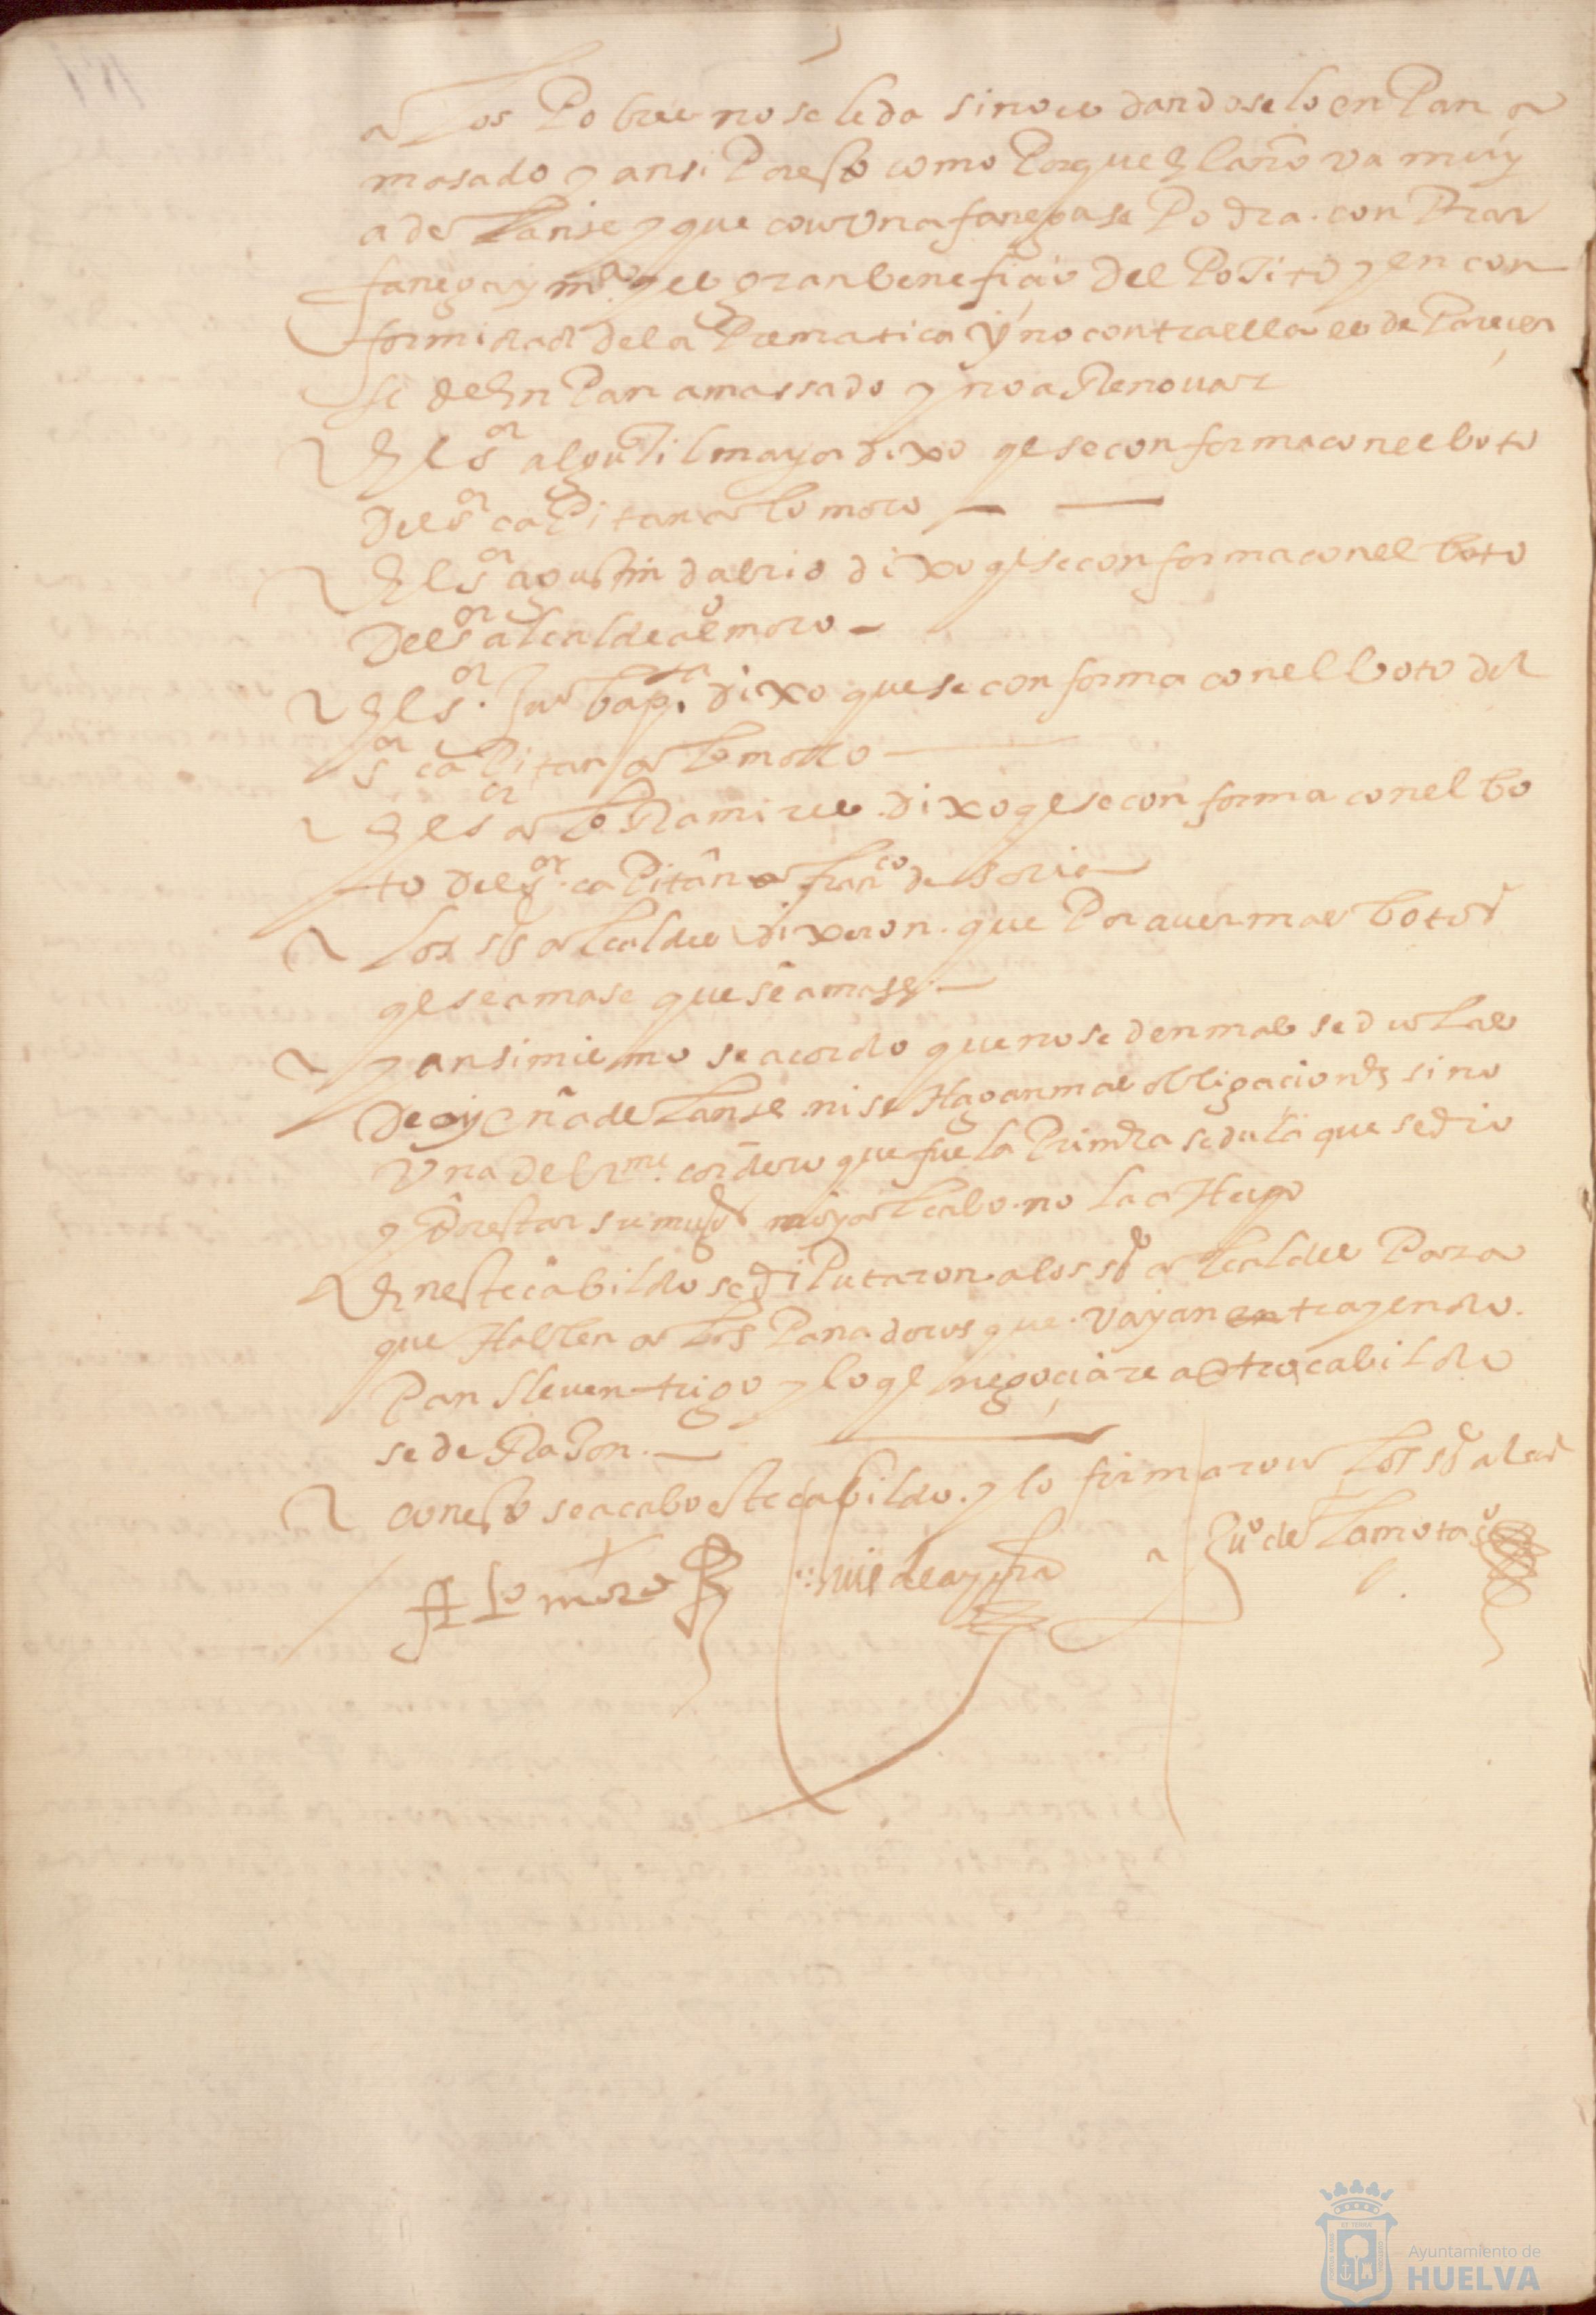 a los Pobres no se le da sino es dandoselo en Pan a
masado y ansi Por esto como Porque El año va muy
adelante y que con Una fanega se Podra conPrar
fanega y mª y es gran beneficio del Posito y en con
formidad de la Prematica y no contra ella es de Parecer
se de En Pan amassado y no a Renovar
El sor alguaZil mayor dixo qe se conforma con el boto
Del sor caPitan alo moro
El sor agustin dabrio dixo qe se conforma con el boto
Del sor alcalde alº moro
El sor Juº bapta dixo que se conforma con el boto del
sor caPitan alo moro
El sor alo Ramires dixo qe se conforma con el bo
to Del sor caPitan franco de soria
los ss alcaldes dixeron que Por aver mas botos
qe se amase que se amase
y ansimismo se acordo que no se den mas sedulas
De oy En adelante ni se Hagan mas obligaciones sino
Una de cordero que fue la Primera sedula que se dio
q Por estar su muger no la Hizo
En este cabildo se diPutaron a los ss alcaldes Para
que Hablen a los Panaderos que vayan trayendo
Pan lleven trigo y lo qe negociare a otro cabildo
se de RaZon
con esto se acabo este cabildo y lo firmaron los ss alcs
Alo moro Ruiz de Juº de la mota
Ayuntamiento de
HUELVA